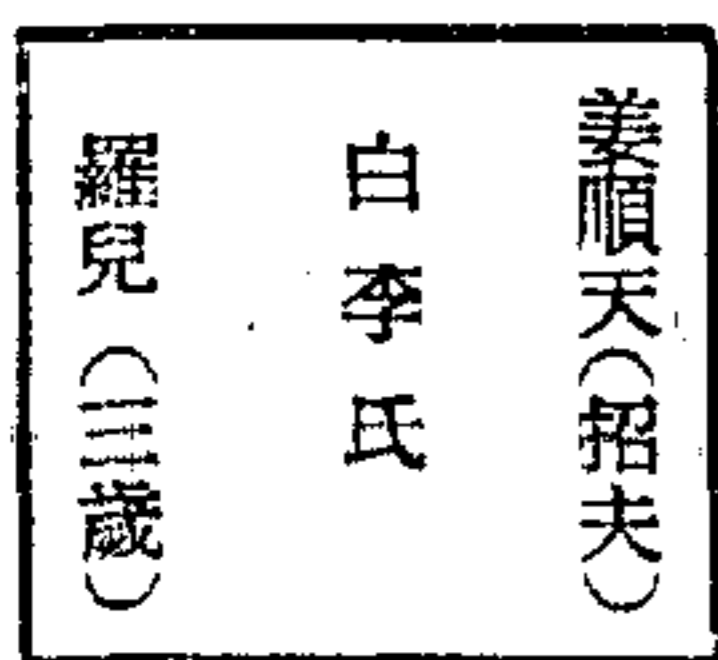 姜順天(招夫)
白李氏
羅兒(三歲)